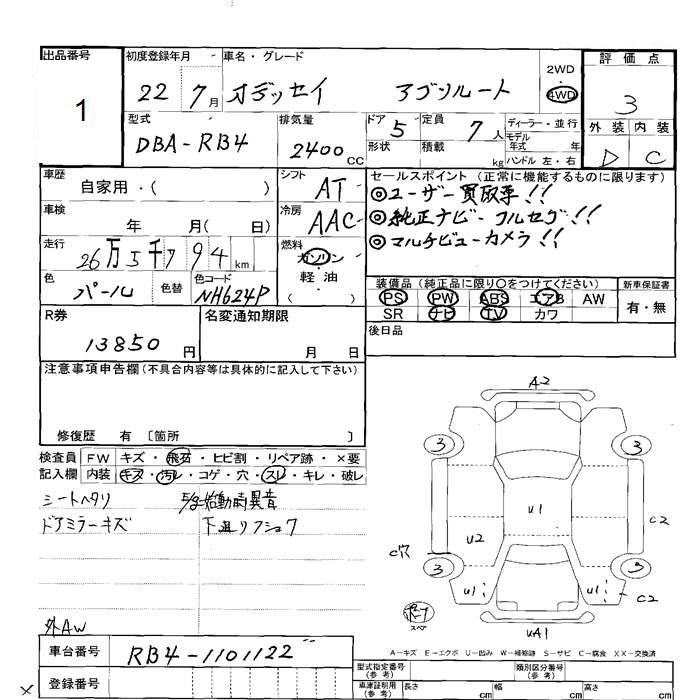 出品番号
1
初度登録年月
22 7月
車名・グレード
オデッセイ アブソルート
2WD
4WD
評価点
3
外装 内装
D C
型式
DBA-RB4
排気量
2400 CC
ドア 5
形状
定員 7 人
積載 kg
ディーラー・並行
モデル年式 年
ハンドル 左・右
車歴
自家用・( )
シフト AT
セールスポイント(正常に機能するものに限ります)
◎ユーザー買取車!!
◎純正ナビ-フルセグ!!
◎マルチビューカメラ!!
車検
年 月( 日)
冷房 AAC
走行
26万5千794 km
燃料
ガソリン
軽油
( )
色 パール
色替
色コード NH624P
装備品(純正品に限り○をつけてください)
PS PW ABS エアB AW
SR ナビ TV カワ
新車保証書
有・無
R券
13850円
名変通知期限
月 日
後日品
注意事項申告欄(不具合内容等は具体的に記入して下さい)
修復歴 有〔箇所 〕
検査員記入欄
FW キズ・飛石・ヒビ割・リペア跡・×要
内装 キズ・汚レ・コゲ・穴・スレ・キレ・破レ
シートヘタリ
始動時異音
ドアミラーキズ
下廻リフショク
外AW
A2
3 3
U1
U2
C2
C穴
3 3
U1 U1
C2
スペア
UA1
A-キズ E-エクボ U-凹み W-補修跡 S-サビ C-腐食 XX-交換済
車台番号
RB4-1101122
登録番号
×
型式指定番号(参考)
類別区分番号(参考)
車庫証明用(参考)
長さ cm
幅 cm
高さ cm